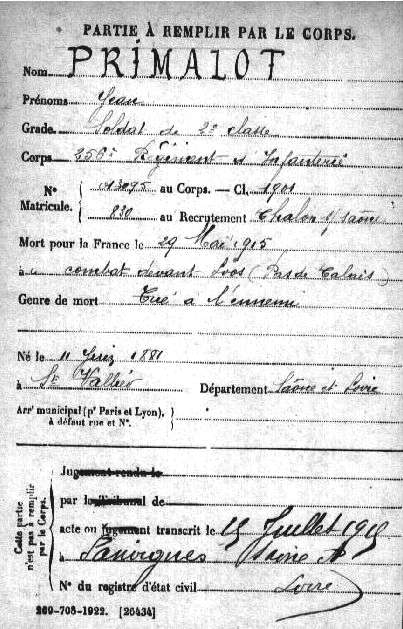 PARTIE À REMPLIR PAR LE CORPS.
Nom PRIMALOT
Prénoms Jean
Grade Soldat de 2e classe
Corps 256e Régiment d'Infanterie
N° Matricule. { 013095 au Corps. — Cl. 1901
830 au Recrutement Chalon s/saône
Mort pour la France le 29 Mai 1915
à combat devant Loos (Pas de Calais)
Genre de mort Tué à l'ennemi
Né le 11 Juin 1881
à St Vallier Département Saône et Loire
Arrt municipal (pr Paris et Lyon), à défaut rue et N°.
Cette partie n'est pas à remplir par le Corps.
Jugement rendu le
par le Tribunal de
acte ou jugement transcrit le 15 Juillet 1915
à Sanvignes Saône et
N° du registre d'état civil Loire
269-708-1922. [26434]